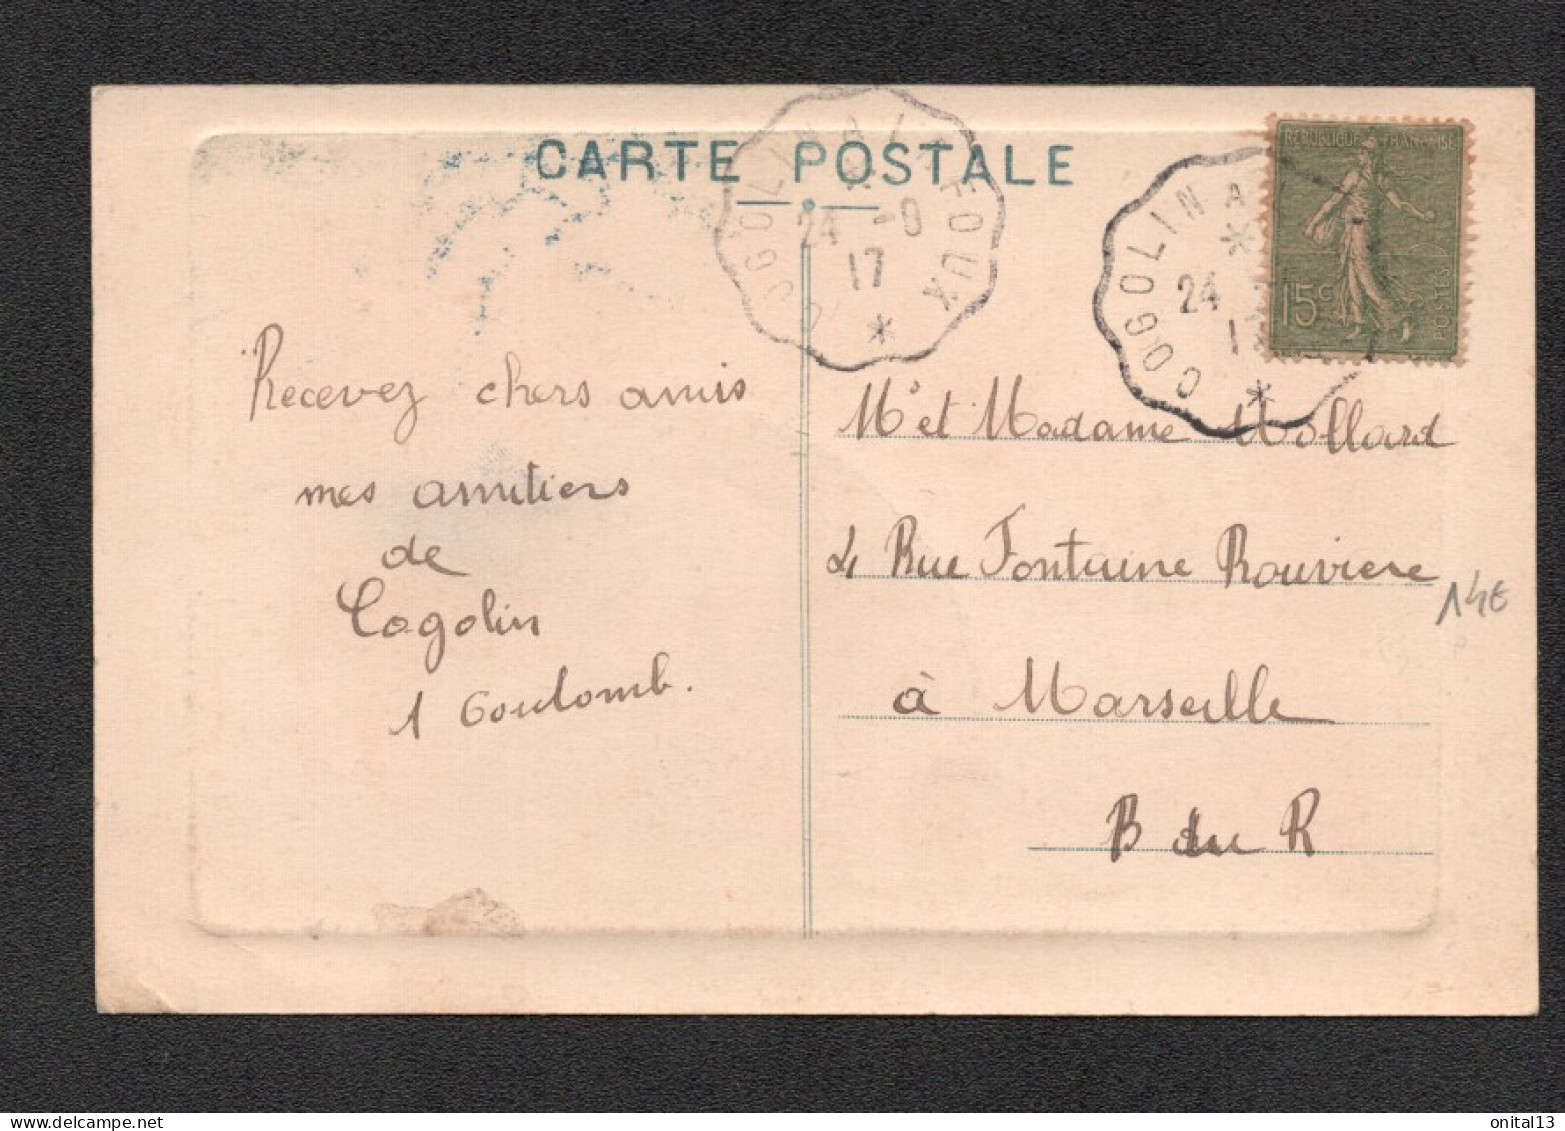 CARTE POSTALE
COGOLIN A LA FOUX
24 -9
17
COGOLIN A
24
1
REPUBLIQUE FRANÇAISE
15c
POSTES
Recevez chers amis
mes amitiers
de
Cogolin
1 Coulomb.
Mr et Madame Mollard
4 Rue Fontaine Rouviere
à Marseille
B du R
14€
https://www.delcampe.net
onital13